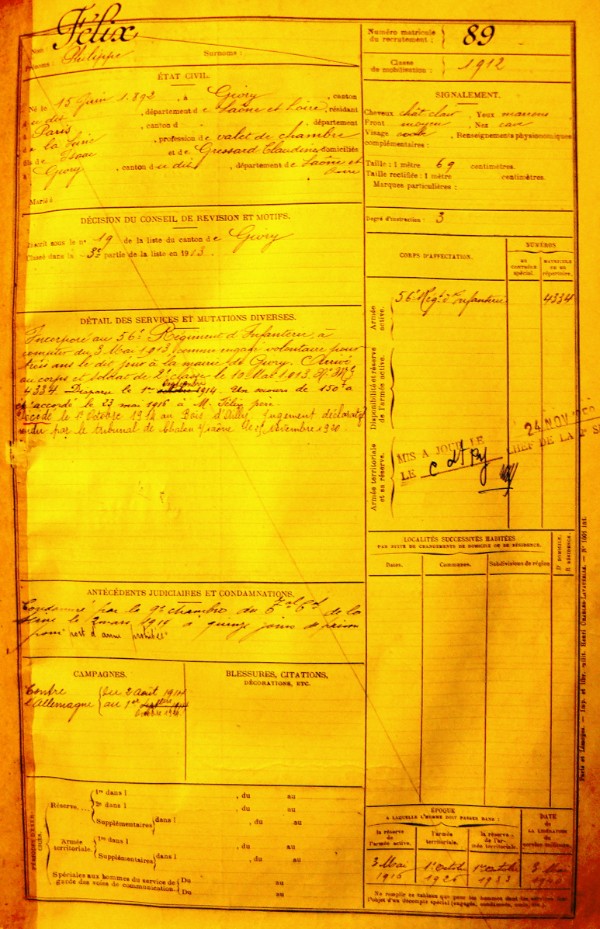 Félix
Nom :
Prénoms : Philippe Surnoms :
ÉTAT CIVIL.
Né le 15 Juin 1893, à Givry, canton
du dit, département de Saône et Loire, résidant
à Paris, canton d, département
de la Seine, profession de valet de chambre
fils de et de Gressard Claudine domiciliés
à Givry, canton du dit, département de Saône et
Loire
Marié
DÉCISION DU CONSEIL DE REVISION ET MOTIFS.
Inscrit sous le n° 19 de la liste du canton de Givry
Classé dans la 3e partie de la liste en 1913.
DÉTAIL DES SERVICES ET MUTATIONS DIVERSES.
Incorporé au 56e Régiment d'Infanterie à
compter du 3 Mai 1913 comme engagé volontaire pour
trois ans le dit jour à la mairie de Givry. Arrivé
au corps et soldat de 2e classe le 10 Mai 1913 No Mle
4334 Disparu le 1er octobre 1914 Un secours de 150f a
été accordé le 23 mai 1916 à M. Félix père
Décédé le 1er Octobre 1914 au Bois d'Ailly. Jugement déclaratif
rendu par le tribunal de Chalon s/Saône le novembre 1920.
ANTÉCÉDENTS JUDICIAIRES ET CONDAMNATIONS.
Condamné par la 9e chambre du de la
Seine le 2 mars 1914 à quinze jours de prison
pour port d'arme prohibé
CAMPAGNES.
Contre l'Allemagne
du 2 Août 1914
au 1er octobre 1914
BLESSURES, CITATIONS,
DÉCORATIONS, ETC.
Réserve
1re dans l , du au
2e dans l , du au
Supplémentaires dans l , du au
Armée territoriale.
1re dans l , du au
Supplémentaires dans l , du au
Spéciales aux hommes du service de garde des voies de communication
Du au
Du au
Numéro matricule du recrutement : 89
Classe de mobilisation : 1912
SIGNALEMENT.
Cheveux chât clair Yeux marrons
Front moyen Nez cave
Visage ovale Renseignements physionomiques
complémentaires :
Taille : 1 mètre 69 centimètres.
Taille rectifiée : 1 mètre centimètres.
Marques particulières :
Degré d'instruction : 3
CORPS D'AFFECTATION.
NUMÉROS
au contrôle spécial.
MATRICULE ou au répertoire.
Armée active.
56e Régt d'Infanterie 4334
Disponibilité et réserve de l'armée active.
Armée territoriale et sa réserve.
MIS A JOUR LE
LE
24 NOV
CHEF DE LA
LOCALITÉS SUCCESSIVES HABITÉES
PAR SUITE DE CHANGEMENTS DE DOMICILE OU DE RÉSIDENCE.
Dates. Communes. Subdivisions de région D. DOMICILE. R. RÉSIDENCE.
ÉPOQUE
A LAQUELLE L'HOMME DOIT PASSER DANS :
la réserve de l'armée active.
l'armée territoriale.
la réserve de l'armée territoriale.
DATE de LA LIBÉRATION du service militaire.
3 Mai 1916
1er octob 1926
1er octobre 1933
3 Mai
Paris et Limoges. — Imp. et libr. milit. Henri CHARLES-LAVAUZELLE.